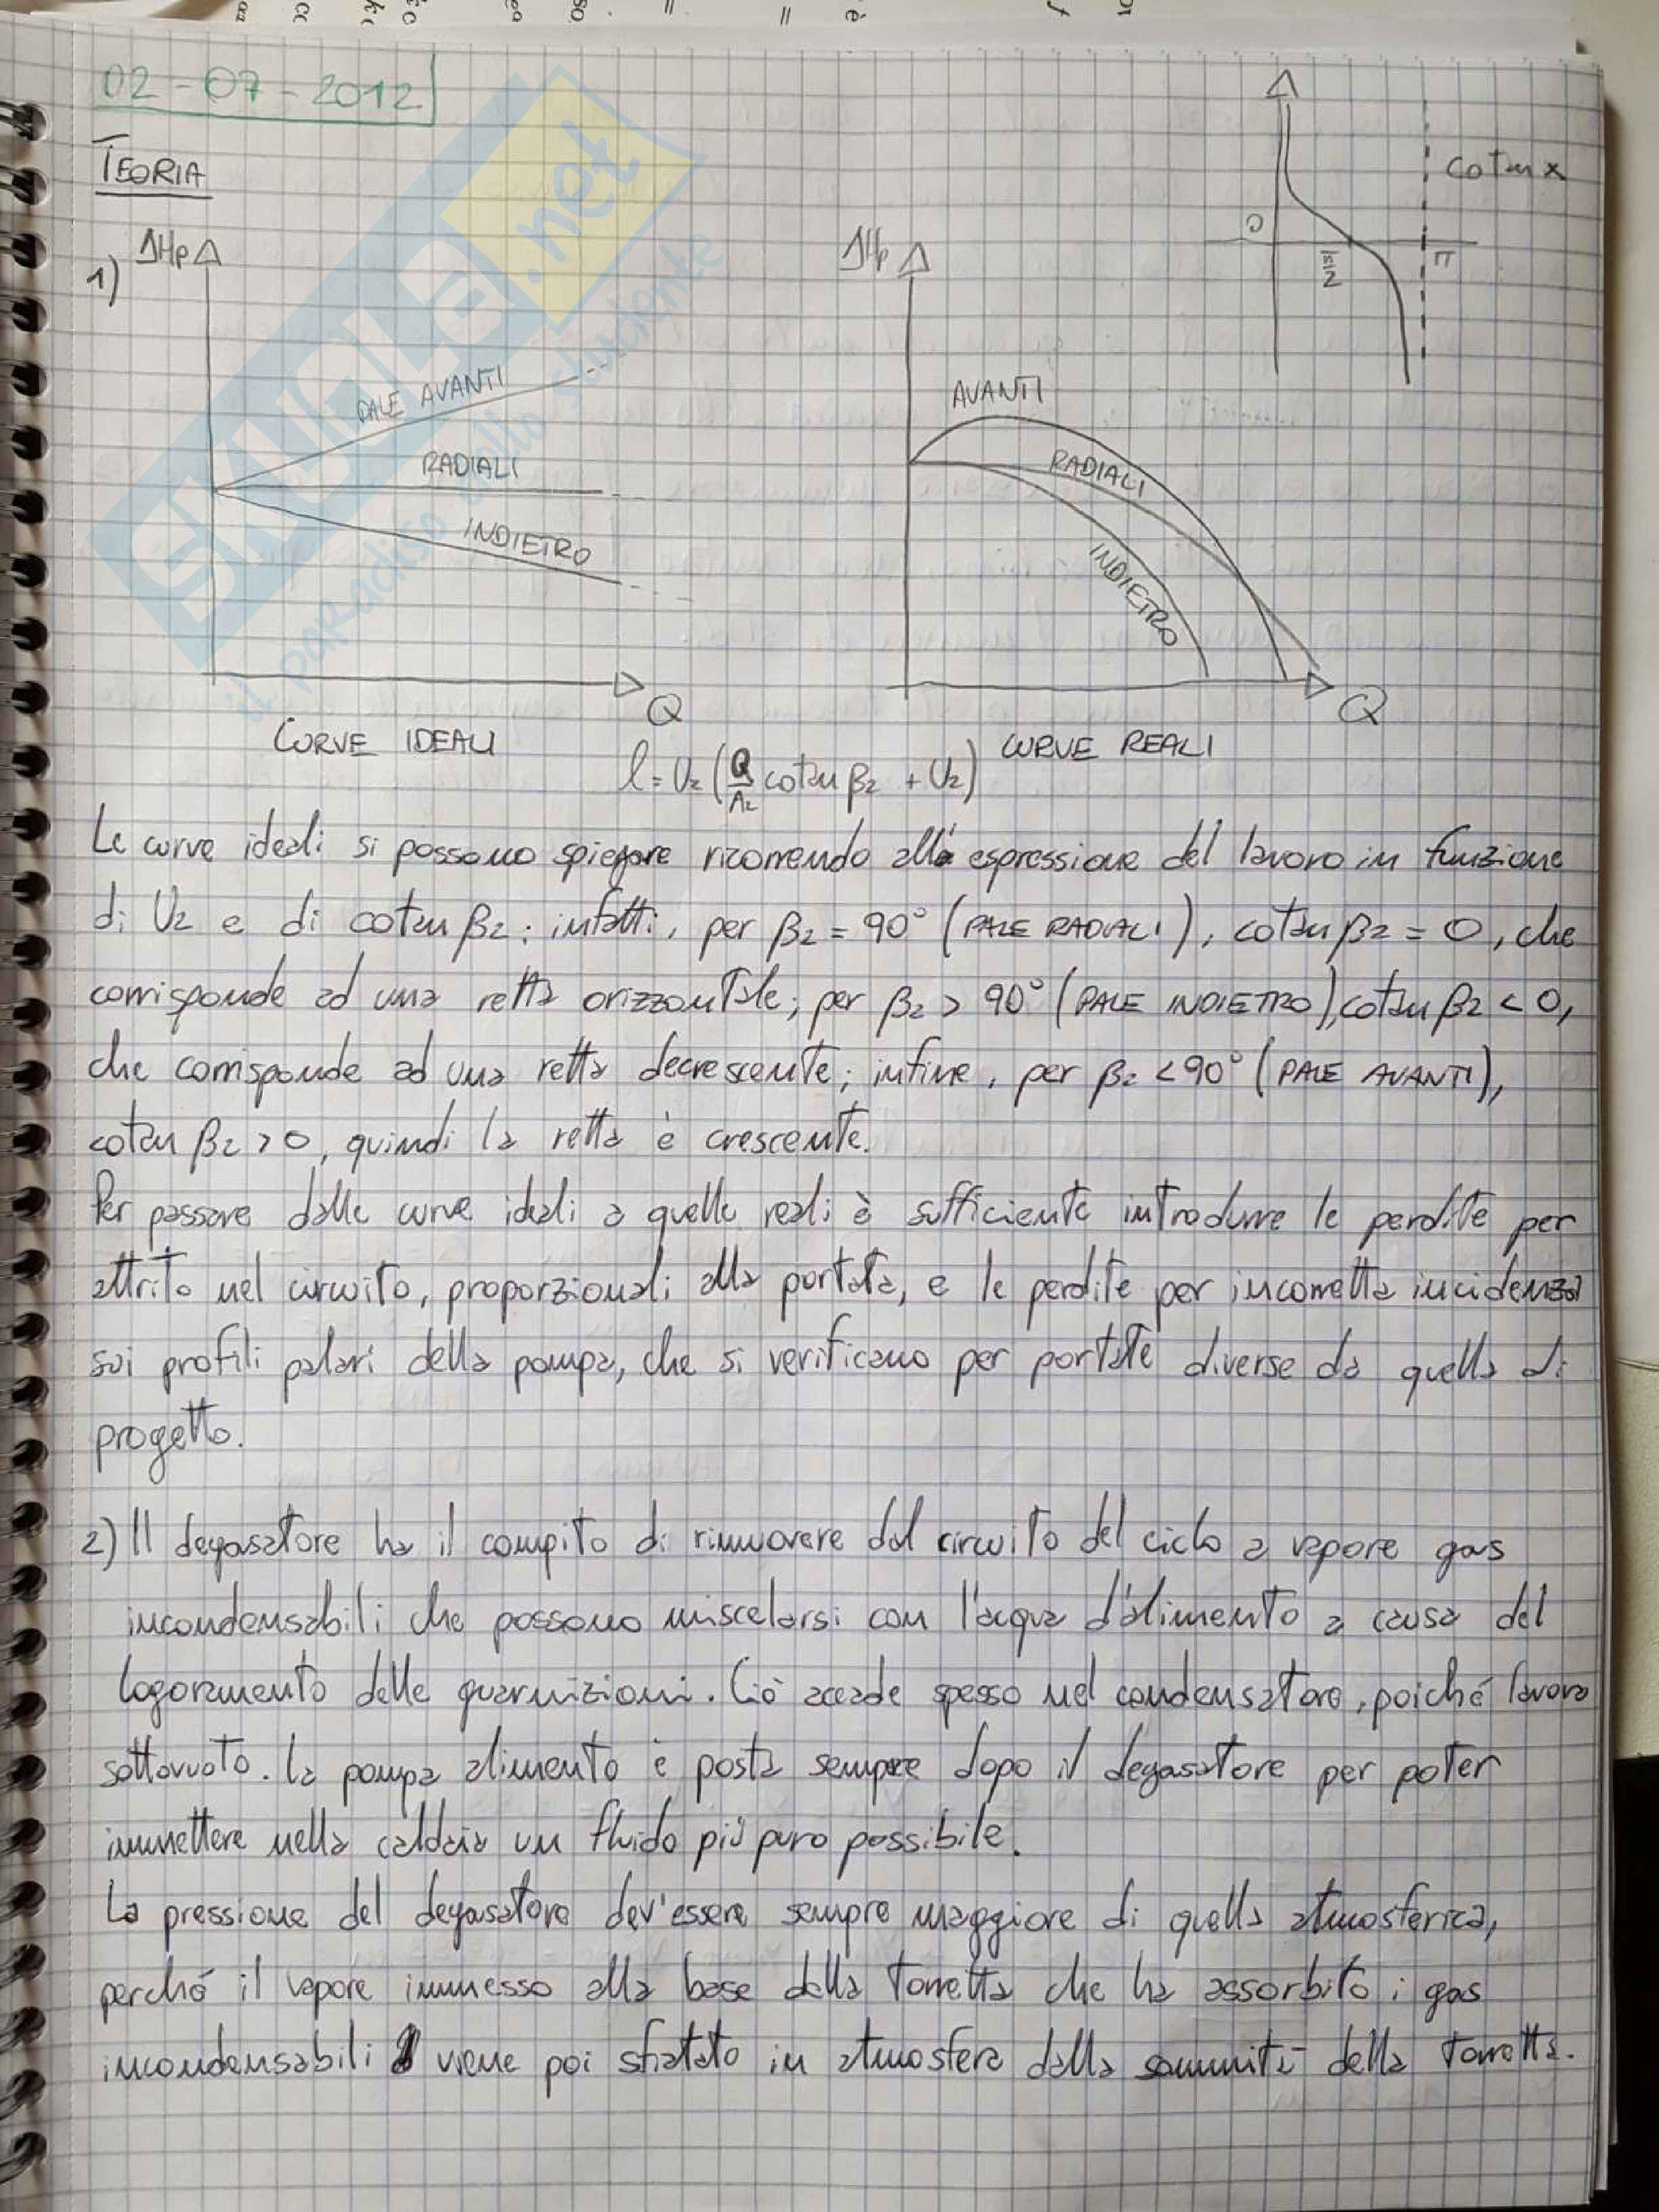 02-07-2012
TEORIA
cotan x
0
π/2
π
1)
ΔHp
PALE AVANTI
RADIALI
INDIETRO
Q
CURVE IDEALI
ΔHp
AVANTI
RADIALI
INDIETRO
Q
CURVE REALI
l = U2 (Q/A2 cotan β2 + U2)
Le curve ideali si possono spiegare ricorrendo alla espressione del lavoro in funzione
di U2 e di cotan β2: infatti, per β2 = 90° (PALE RADIALI), cotan β2 = 0, che
corrisponde ad una retta orizzontale; per β2 > 90° (PALE INDIETRO), cotan β2 < 0,
che corrisponde ad una retta decrescente; infine, per β2 < 90° (PALE AVANTI),
cotan β2 > 0, quindi la retta è crescente.
Per passare dalle curve ideali a quelle reali è sufficiente introdurre le perdite per
attrito nel circuito, proporzionali alla portata, e le perdite per incorretta incidenza
sui profili palari della pompa, che si verificano per portate diverse da quella di
progetto.
2) Il degasatore ha il compito di rimuovere dal circuito del ciclo a vapore gas
incondensabili che possono miscelarsi con l'acqua d'alimento a causa del
logoramento delle guarnizioni. Ciò accade spesso nel condensatore, poiché lavora
sottovuoto. La pompa alimento è posta sempre dopo il degasatore per poter
immettere nella caldaia un fluido più puro possibile.
La pressione del degasatore dev'essere sempre maggiore di quella atmosferica,
perché il vapore immesso alla base della torretta che ha assorbito i gas
incondensabili viene poi sfiatato in atmosfera dalla sommità della torretta.
SKUOLA.net
il paradiso dello studente